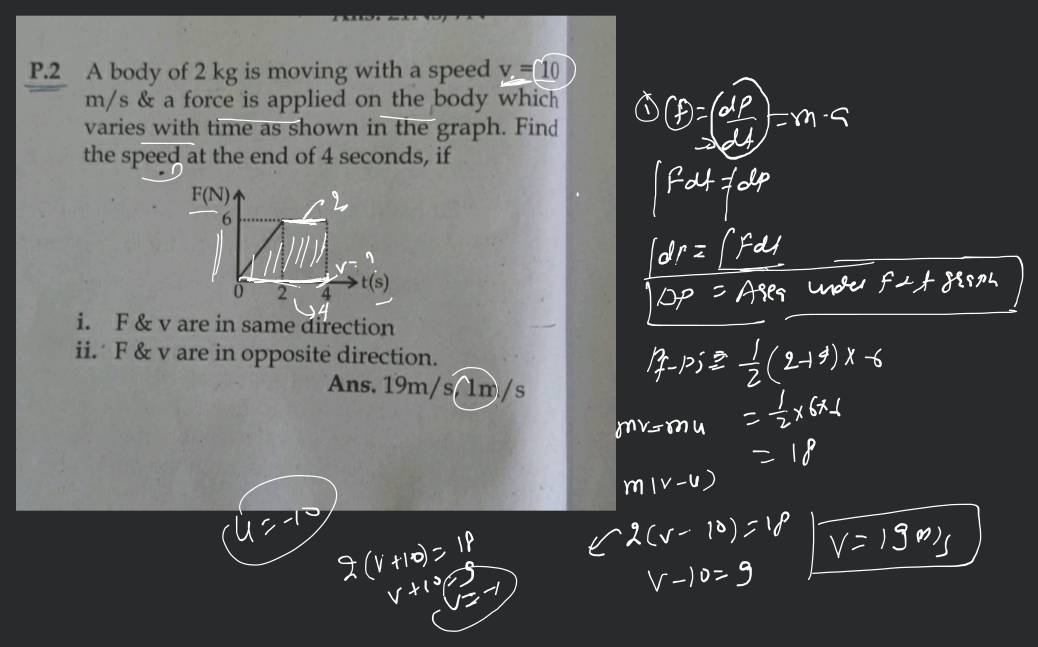 P.2 A body of 2 kg is moving with a speed v = 10
m/s & a force is applied on the body which
varies with time as shown in the graph. Find
the speed at the end of 4 seconds, if
F(N)
6
2
v = ?
t(s)
0 2 4
4
i. F & v are in same direction
ii. F & v are in opposite direction.
Ans. 19m/s, 1m/s
① (f) = (dp/dt) = m·a
∫Fdt = ∫dp
∫dp = ∫Fdt
DP = Area under f & t graph
Pf - Pi = 1/2 (2+4) × 6
= 1/2 × 6 × 6
= 18
mv - mu
m(v-u)
2(v - 10) = 18
v - 10 = 9
v = 19 m/s
u = -10
2(v+10) = 18
v + 10 = 9
v = -1